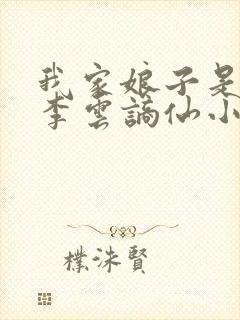 我家娘子是
李雲謫仙小
樸洙賢